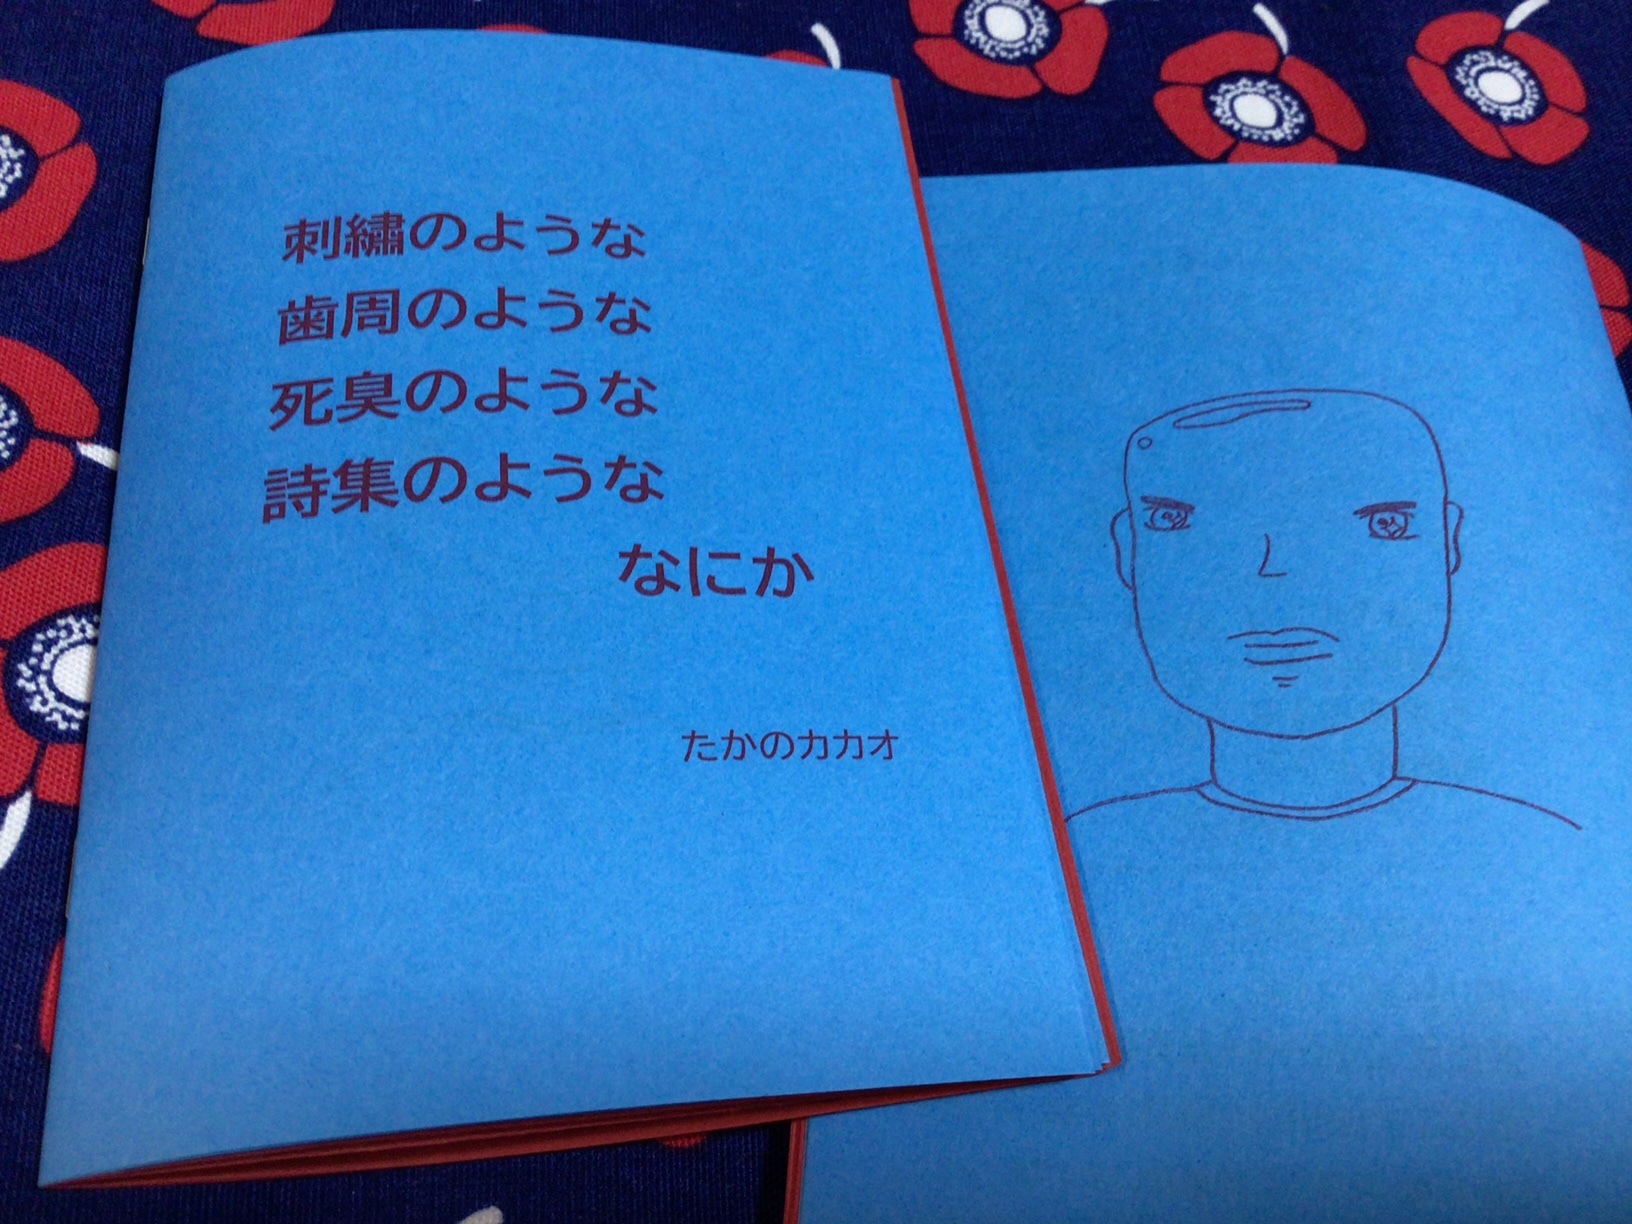 刺繡のような
歯周のような
死臭のような
詩集のような
なにか
たかのカカオ